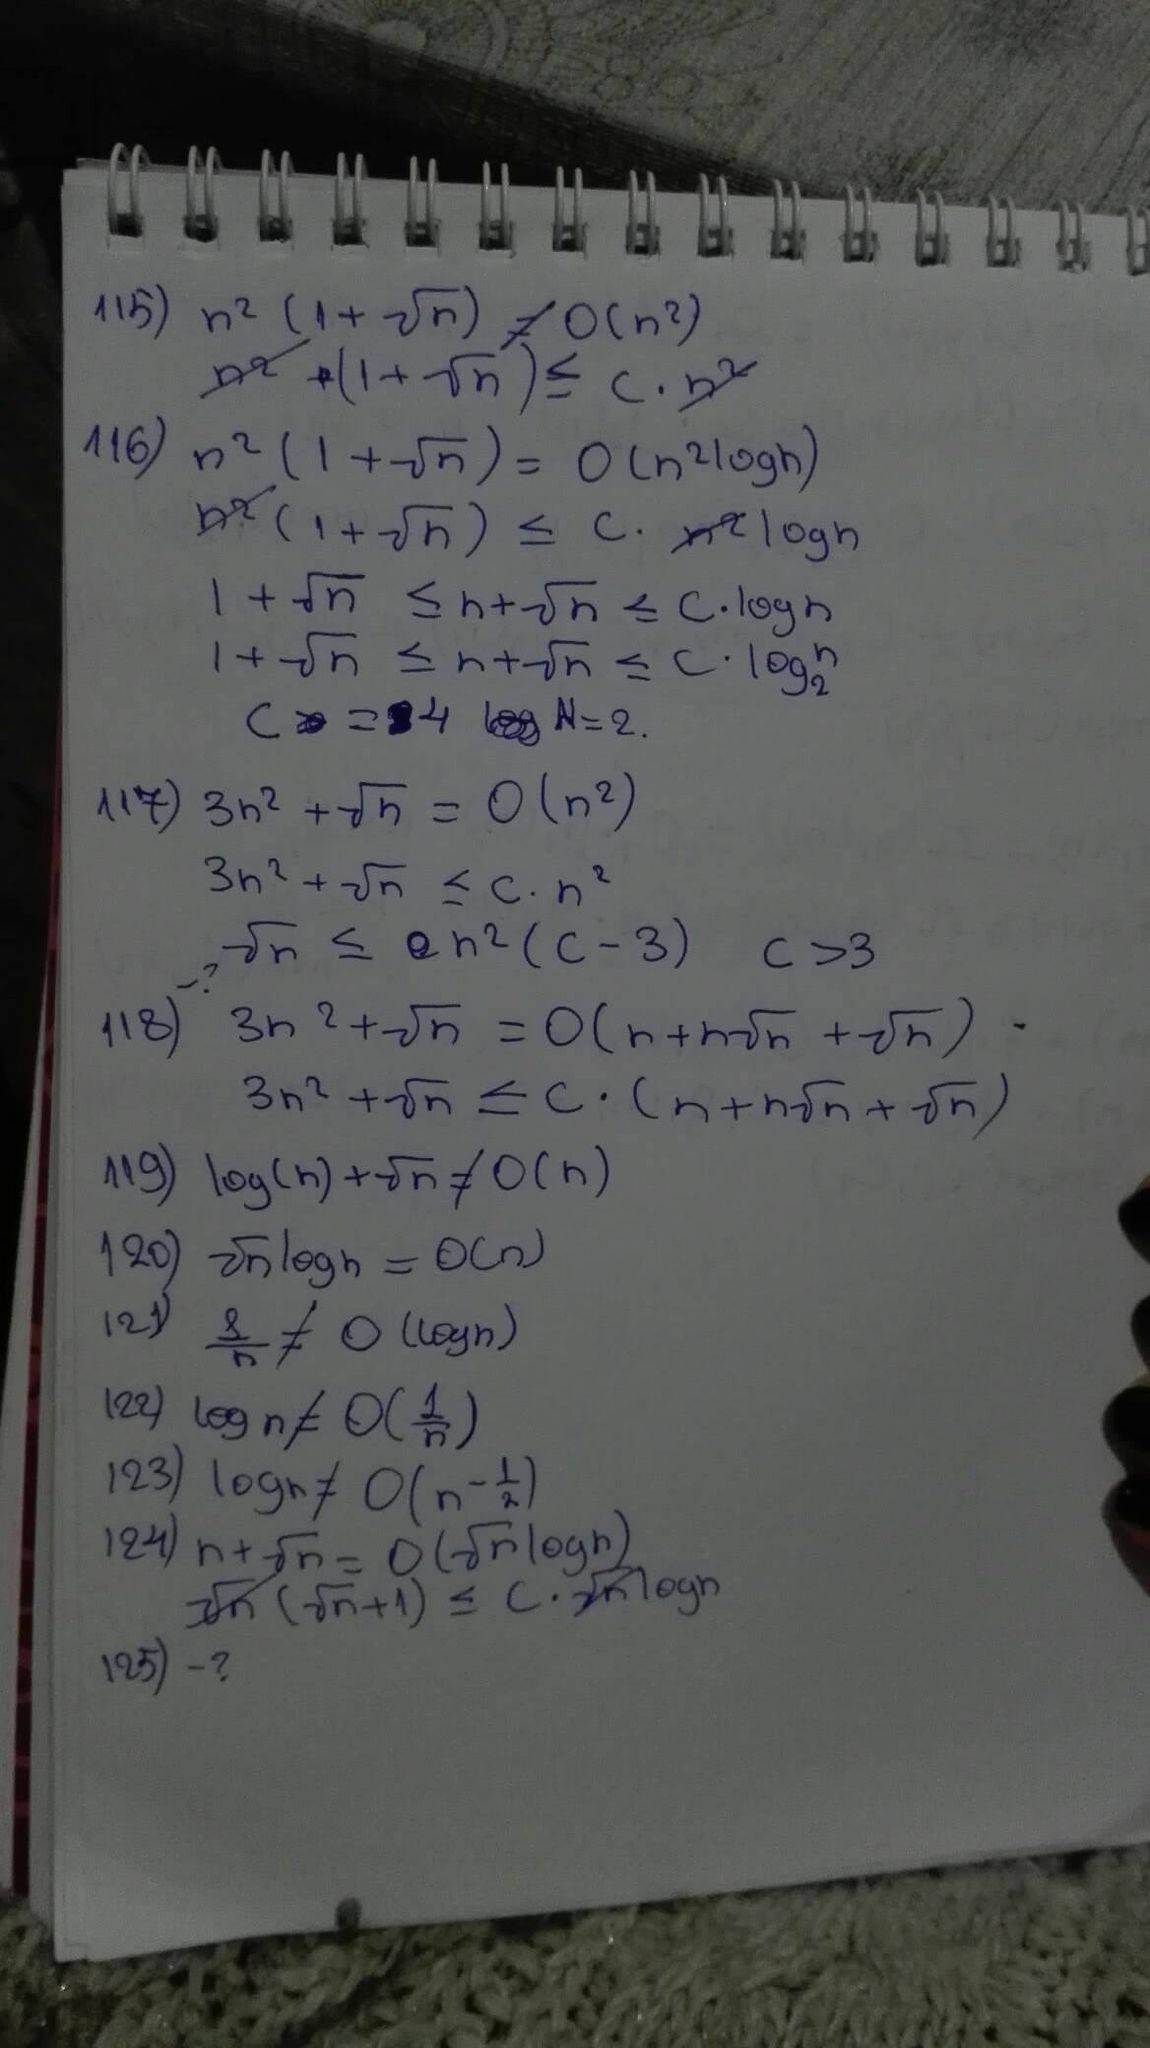 115) n² (1+√n) ≠ O(n²)
n² (1+√n) ≤ C·n²
116) n² (1+√n) = O(n²logn)
n² (1+√n) ≤ C. n² logn
1+√n ≤ n+√n ≤ C·logn
1+√n ≤ n+√n ≤ C·log₂n
C = 4 N=2.
117) 3n²+√n = O(n²)
3n²+√n ≤ C·n²
√n ≤ n²(C-3) C>3
-?
118) 3n²+√n = O(n+n√n+√n)
3n²+√n ≤ C·(n+n√n+√n)
119) log(n)+√n ≠ O(n)
120) √nlogn = O(n)
121) 1/n ≠ O(logn)
122) logn ≠ O(1/n)
123) logn ≠ O(n-½)
124) n+√n = O(√nlogn)
√n(√n+1) ≤ C·√nlogn
125) -?